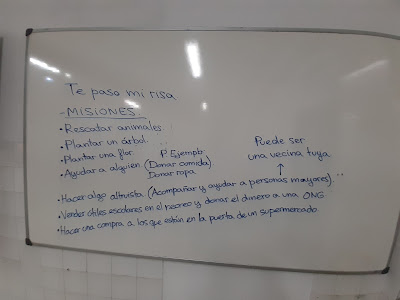 Te paso mi risa
-MISIONES
•Rescatar animales
•Plantar un árbol.
•Plantar una flor.
•Ayudar a alguien (Donar comida)
P Ejemplo
Donar ropa
Puede ser
una vecina tuya
•Hacer algo altruista (Acompañar y ayudar a personas mayores)..
•Vender útiles escolares en el recreo y donar el dinero a una ONG
•Hacer una compra a los que están en la puerta de un supermercado